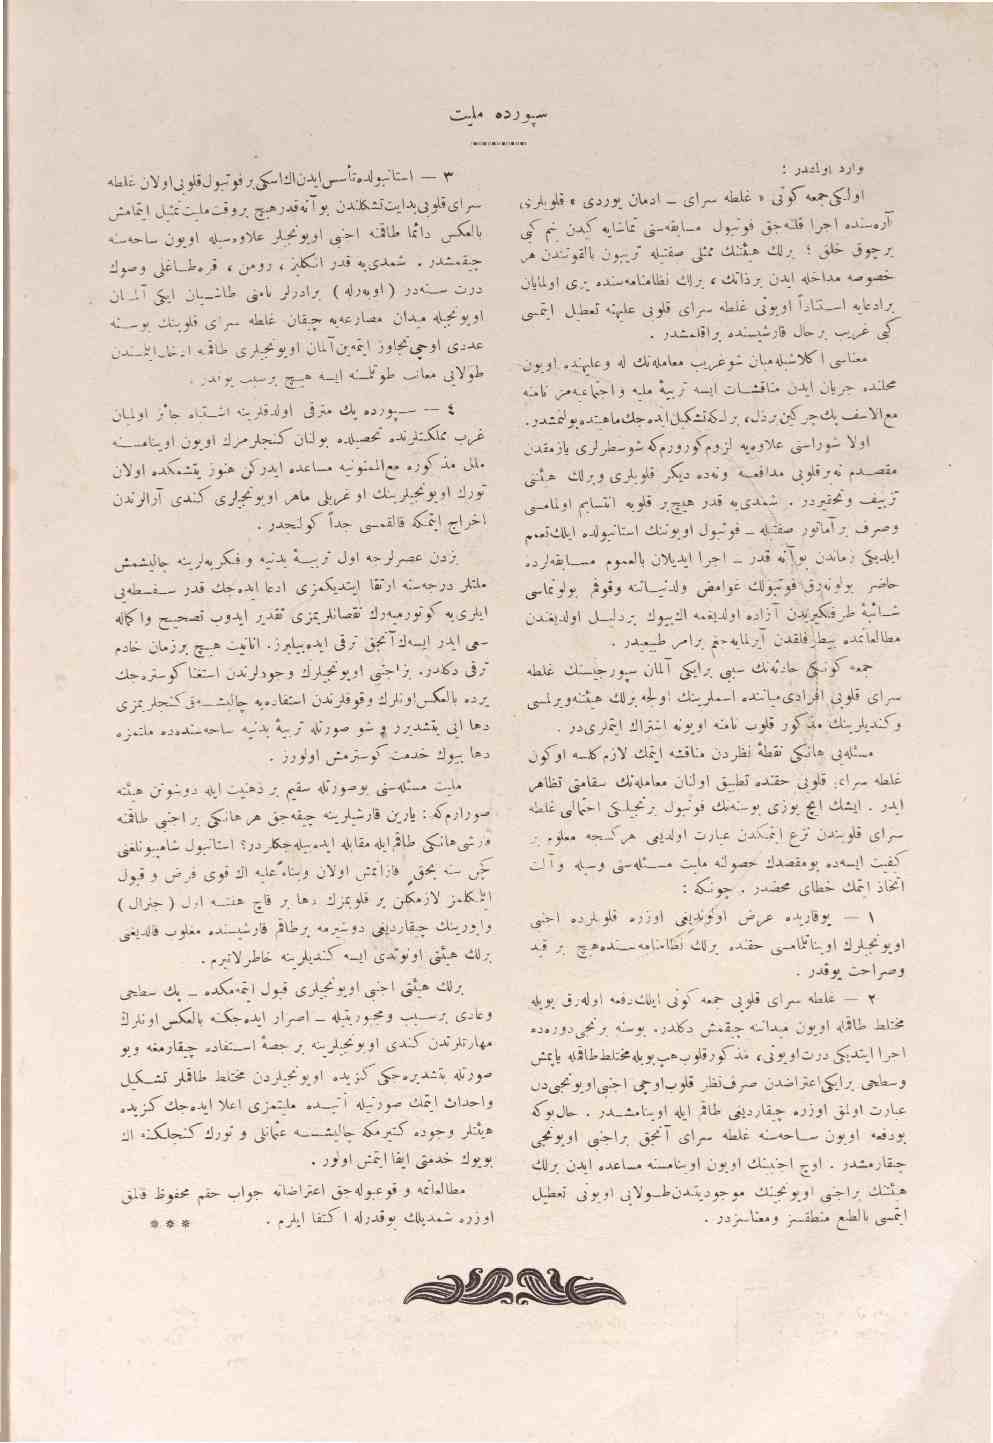 سپورده ملیت
وارد اولمشدر :
اولكی جمعه كونی « غلطه سرای ـ ادمان یوردی » قلوبلری
آره‌سنده اجرا قلنه‌جق فوتبول مسابقه‌سنی تماشایه كیدن بنم كبی
برچوق خلق ؛ برلك هیئتنك ممثلی صفتیله تریبون بالقونندن هر
خصوصه مداخله ایدن برذاتك ، برلك نظامنامه‌سنده یری اولمایان
برادعایه استناداً اویونی غلطه سرای قلوبی علیهنه تعطیل ایتمسی
كبی غریب برحال قارشیسنده براقلمشدر .
معناسی اكلاشیله‌میان شو غریب معامله‌نك له وعلیهنده اویون
محلنده جریان ایدن مناقشات ایسه تربیهٔ ملیه و اجتماعیه‌مز نامنه
مع‌الاسف پك چركین بر ذیل ، برلكه تشكیل ایده‌جك ماهیتده بولنمشدر.
اولا شوراسنی علاوه‌یه لزوم كورورم كه شو سطرلری یازمقدن
مقصدم نه بر قلوبی مدافعه ونه‌ده دیكر قلوبلری و برلك هیئتنی
تزییف وتحقیردر . شمدی‌یه قدر هیچ‌بر قلوبه انتسابم اولمامسی
وصرف بر آماتور صفتیله ـ فوتبول اویوننك استانبولده ایلك تعمم
ایلدیكی زماندن بو آنه قدر ـ اجرا ایدیلان بالعموم مسابقه‌لرده
حاضر بولونه‌رق فوتبولك غوامض ولدنیاتنه وقوفم بولونماسی
شائبهٔ طرفگیریدن آزاده اولدیغمه اك بیوك بردلیل اولدیغندن
مطالعاتمده بیطرفلقدن آیرلمایه‌جغم برامر طبیعیدر .
جمعه كونكی حادثه‌نك سببی برایكی آلمان سپورجیسنك غلطه
سرای قلوبی افرادی میاننده اسملرینك اولجه برلك هیئتنه ویرلمسی
وكندیلرینك مذكور قلوب نامنه اویونه اشتراك ایتملری‌در .
مسئله‌یی هانكی نقطهٔ نظردن مناقشه ایتمك لازم كلسه اوكون
غلطه سرای قلوبی حقنده تطبیق اولنان معامله‌نك سقامتی تظاهر
ایدر . ایشك ایچ یوزی بوسنه‌نك فوتبول برنجیلكی احتمالی غلطه
سرای قلوبندن نزع ایتمكدن عبارت اولدیغی هركسجه معلوم بر
كیفیت ایسه‌ده بومقصدك حصولنه ملیت مسئله‌سنی وسیله وآلت
اتخاذ ایتمك خطای محضدر . چونكه :
١ — یوقاریده عرض اولوندیغی اوزره قلوبلرده اجنبی
اویونجیلرك اویناتلمامسی حقنده برلك نظامنامه‌سنده هیچ بر قید
وصراحت یوقدر .
٢ — غلطه سرای قلوبی جمعه كونی ایلك دفعه اوله‌رق بویله
مختلط طاقمله اویون میداننه چیقمش دكلدر. بوسنه برنجی دوره‌ده
اجرا ایتدیكی درت اویونی ، مذكور قلوب هپ بویله مختلط طاقمله یاپمش
وسطحی برایكی اعتراضدن صرف‌نظر قلوب اوچی اجنبی اویونجی‌دن
عبارت اولمق اوزره چیقاردیغی طاقم ایله اوینامشدر . حال‌بوكه
بودفعه اویون ساحه‌سنه غلطه سرای آنجق براجنبی اویونجی
چیقارمشدر . اوچ اجنبینك اویون اوینامسنه مساعده ایدن برلك
هیئتنك براجنبی اویونجینك موجودیتندن طولایی اویونی تعطیل
ایتمسی بالطبع منطقسز ومعناسزدر .
٣ — استانبولده تأسس ایدن اك اسكی بر فوتبول قلوبی اولان غلطه
سرای قلوبی بدایت تشكلندن بو آنه قدر هیچ بر وقت ملیت تمثیل ایتمامش
بالعكس دائما طاقمنه اجنبی اویونجیلر علاوه‌سیله اویون ساحه‌سنه
چیقمشدر . شمدی‌یه قدر انكلیز ، رومن ، قره‌طاغلی وصوك
درت سنه‌در ( اوبه‌رله ) برادرلر نامنی طاشیان ایكی آلمان
اویونجیله میدان مصارعه‌یه چیقان غلطه سرای قلوبینك بوسنه
عددی اوچی تجاوز ایتمه‌ین آلمان اویونجیلری طاقمنه ادخال ایتمسندن
طولایی معاتب طوتلمسنه ایسه هیچ برسبب یوقدر .
٤ — سپورده پك مترقی اولدقلرینه اشتباه جائز اولمیان
غرب مملكتلرنده تحصیلده بولنان كنجلرمزك اویون اوینامسنه
ملل مذكوره مع‌الممنونیه مساعده ایدركن هنوز یتشمكده اولان
تورك اویونجیلرینك او غربلی ماهر اویونجیلری كندی آرالرندن
اخراج ایتمكه قالقمسی جداً كولنجدر .
بزدن عصرلرجه اول تربیهٔ بدنیه و فكریه‌لرینه چالیشمش
ملتلر درجه‌سنه ارتقا ایتدیكمزی ادعا ایده‌جك قدر سفسطه‌یی
ایلری‌یه كوتورمیه‌رك نقصانلریمزی تقدیر ایدوب تصحیح واكماله
سعی ایدر ایسه‌ك آنجق ترقی ایده‌بیلیرز. انانیت هیچ برزمان خادم
ترقی دكلدر. بز اجنبی اویونجیلرك وجودلرندن استغنا كوستره‌جك
یرده بالعكس اونلرك وقوفلرندن استفاده‌یه چالیشه‌رق كنجلریمزی
دها ایی یتشدیرر و شو صورتله تربیهٔ بدنیه ساحه‌سنده‌ده ملتمزه
دها بیوك خدمت كوسترمش اولورز .
ملیت مسئله‌سنی بوصورتله سقیم بر ذهنیت ایله دوشونن هیئته
صورارم كه : یارین قارشیلرینه چیقه‌جق هر هانكی بر اجنبی طاقمنه
قارشی هانكی طاقم ایله مقابله ایده‌بیله‌جكلردر؟ استانبول شامپیونلغنی
كچن سنه بحق قازانمش اولان وبناءً علیه اك قوی فرض و قبول
ایتمكلكمز لازم‌كلن بر قلوبمزك دها بر قاچ هفته اول ( جنرال )
واپورینك چیقاردیغی دوشیرمه برطاقم قارشیسنده مغلوب قالدیغنی
برلك هیئتی اونوتدی ایسه كندیلرینه خاطرلاتیرم .
برلك هیئتی اجنبی اویونجیلری قبول ایتمه‌مكده ـ پك سطحی
وعادی برسبب ومجبوریتیله ـ اصرار ایده‌جكنه بالعكس اونلرك
مهارتلرندن كندی اویونجیلرینه بر حصهٔ استفاده چیقارمغه وبو
صورتله یتشدیره‌جكی كزیده اویونجیلردن مختلط طاقملر تشكیل
واحداث ایتمك صورتیله آتیده ملیتمزی اعلا ایده‌جك كزیده
هیئتلر وجوده كتیرمكه چالیشسه عثمانلی و تورك كنجلكنه اك
بویوك خدمتی ایفا ایتمش اولور .
مطالعاتمه و قوعبوله‌جق اعتراضاته جواب حقم محفوظ قالمق
اوزره شمدیلك بوقدرله اكتفا ایلرم .
***